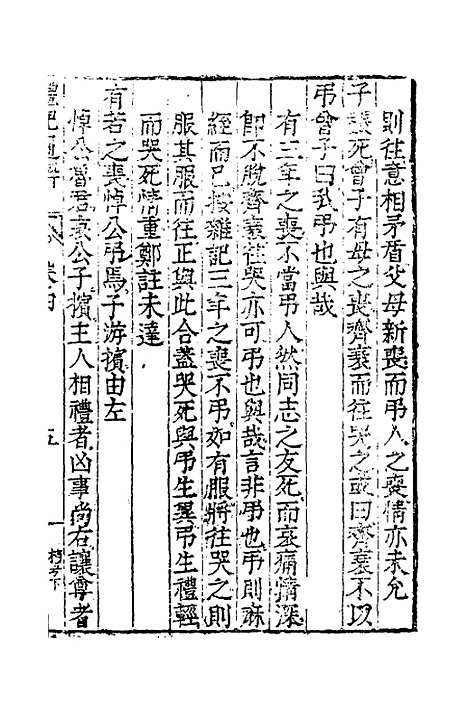 則往意相矛盾父母新喪而弔人之喪情亦未允
子張死曾子有母之喪齊衰而往哭之或曰齊衰不以
弔曾子曰我弔也與哉
有三年之喪不當弔人然同志之友死而哀痛情深
卽不脫齊衰往哭亦可弔也與哉言非弔也弔則麻
絰而已按雜記三年之喪不弔如有服將往哭之則
服其服而往正與此合蓋哭死與弔生異弔生禮輕
而哭死情重鄭註未達
有若之喪悼公弔焉子游擯由左
悼公魯君哀公子擯主人相禮者凶事尚右讓尊者
禮記通解 卷四 五